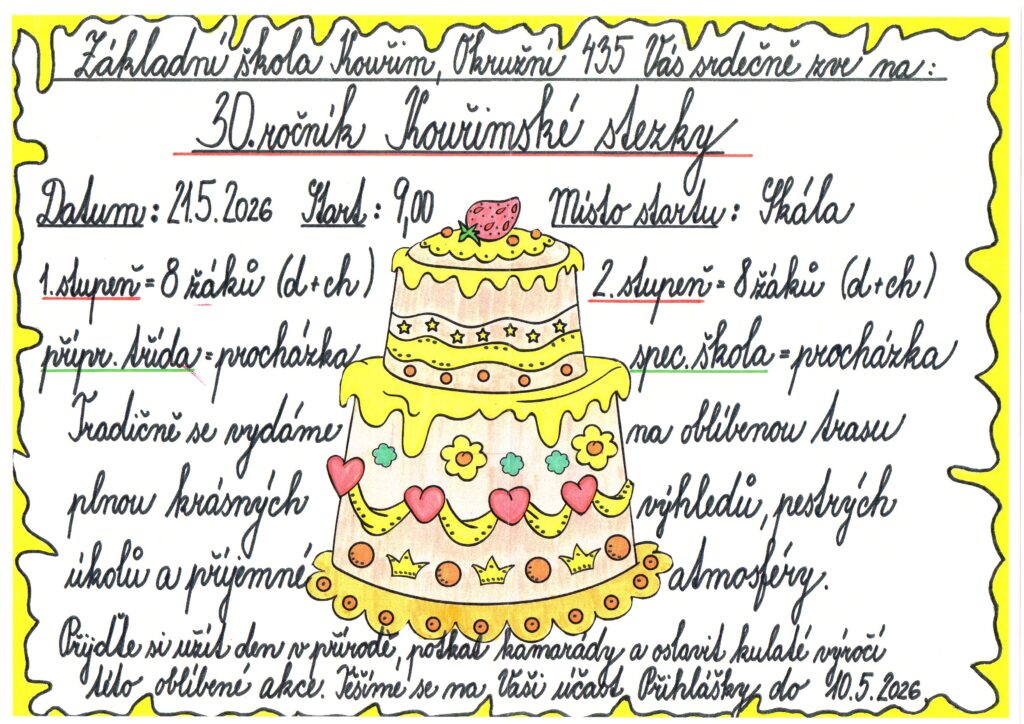 Základní škola Kouřim, Okružní 435 Vás srdečně zve na:
30. ročník Kouřimské stezky
Datum: 21.5.2026 Start: 9,00 Místo startu: Skála
1. stupeň = 8 žáků (d+ch) 2. stupeň = 8 žáků (d+ch)
přípr. třída = procházka spec. škola = procházka
Tradičně se vydáme na oblíbenou trasu
plnou krásných výhledů, pestrých
úkolů a příjemné atmosféry.
Přijďte si užít den v přírodě, potkat kamarády a oslavit kulaté výročí
této oblíbené akce. Těšíme se na Vaši účast. Přihlášky do 10.5.2026.